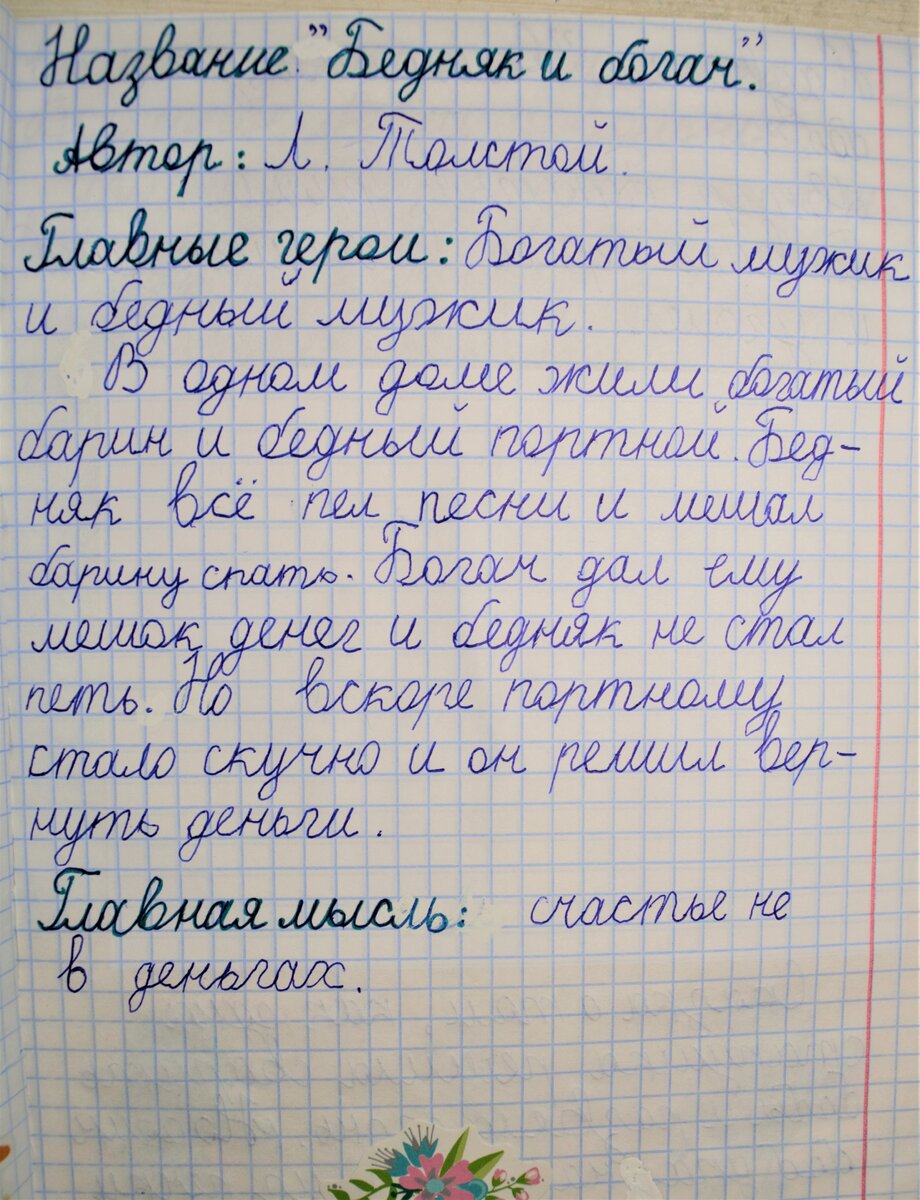 Название "Бедняк и богач".
Автор: Л. Толстой.
Главные герои: Богатый мужик
и бедный мужик.
В одном доме жили богатый
барин и бедный портной. Бед-
няк всё пел песни и мешал
барину спать. Богач дал ему
мешок денег и бедняк не стал
петь. Но вскоре портному
стало скучно и он решил вер-
нуть деньги.
Главная мысль: счастье не
в деньгах.